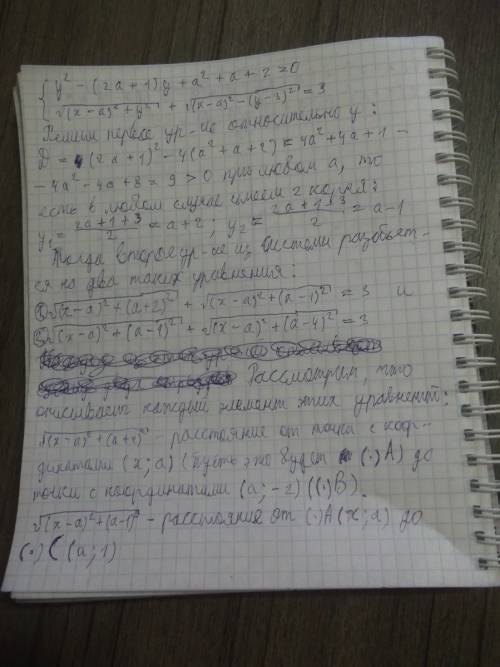 { y² - (2a+1)y + a² + a + 2 = 0
√((x-a)² + y²) + √((x-a)² - (y-3)²) = 3
Решим первое ур-ие относительно y:
D = (2a+1)² - 4(a² + a + 2) = 4a² + 4a + 1 -
- 4a² - 4a + 8 = 9 > 0 при любом a, то
есть в любом случае имеем 2 корня:
y₁ = (2a+1+3)/2 = a+2; y₂ = (2a+1-3)/2 = a-1
Тогда второе ур-ие из системы разобьёт-
ся на два таких уравнения:
① √((x-a)² + (a+2)²) + √((x-a)² + (a-1)²) = 3 и
② √((x-a)² + (a-1)²) + √((x-a)² + (a-4)²) = 3
Рассмотрим, что
описывает каждый элемент этих уравнений:
√((x-a)² + (a+2)²) - расстояние от точки с коор-
динатами (x; a) (пусть это будет (·) A) до
точки с координатами (a; -2) ((·) B).
√((x-a)² + (a-1)²) - расстояние от (·) A (x; a) до
(·) C (a; 1)